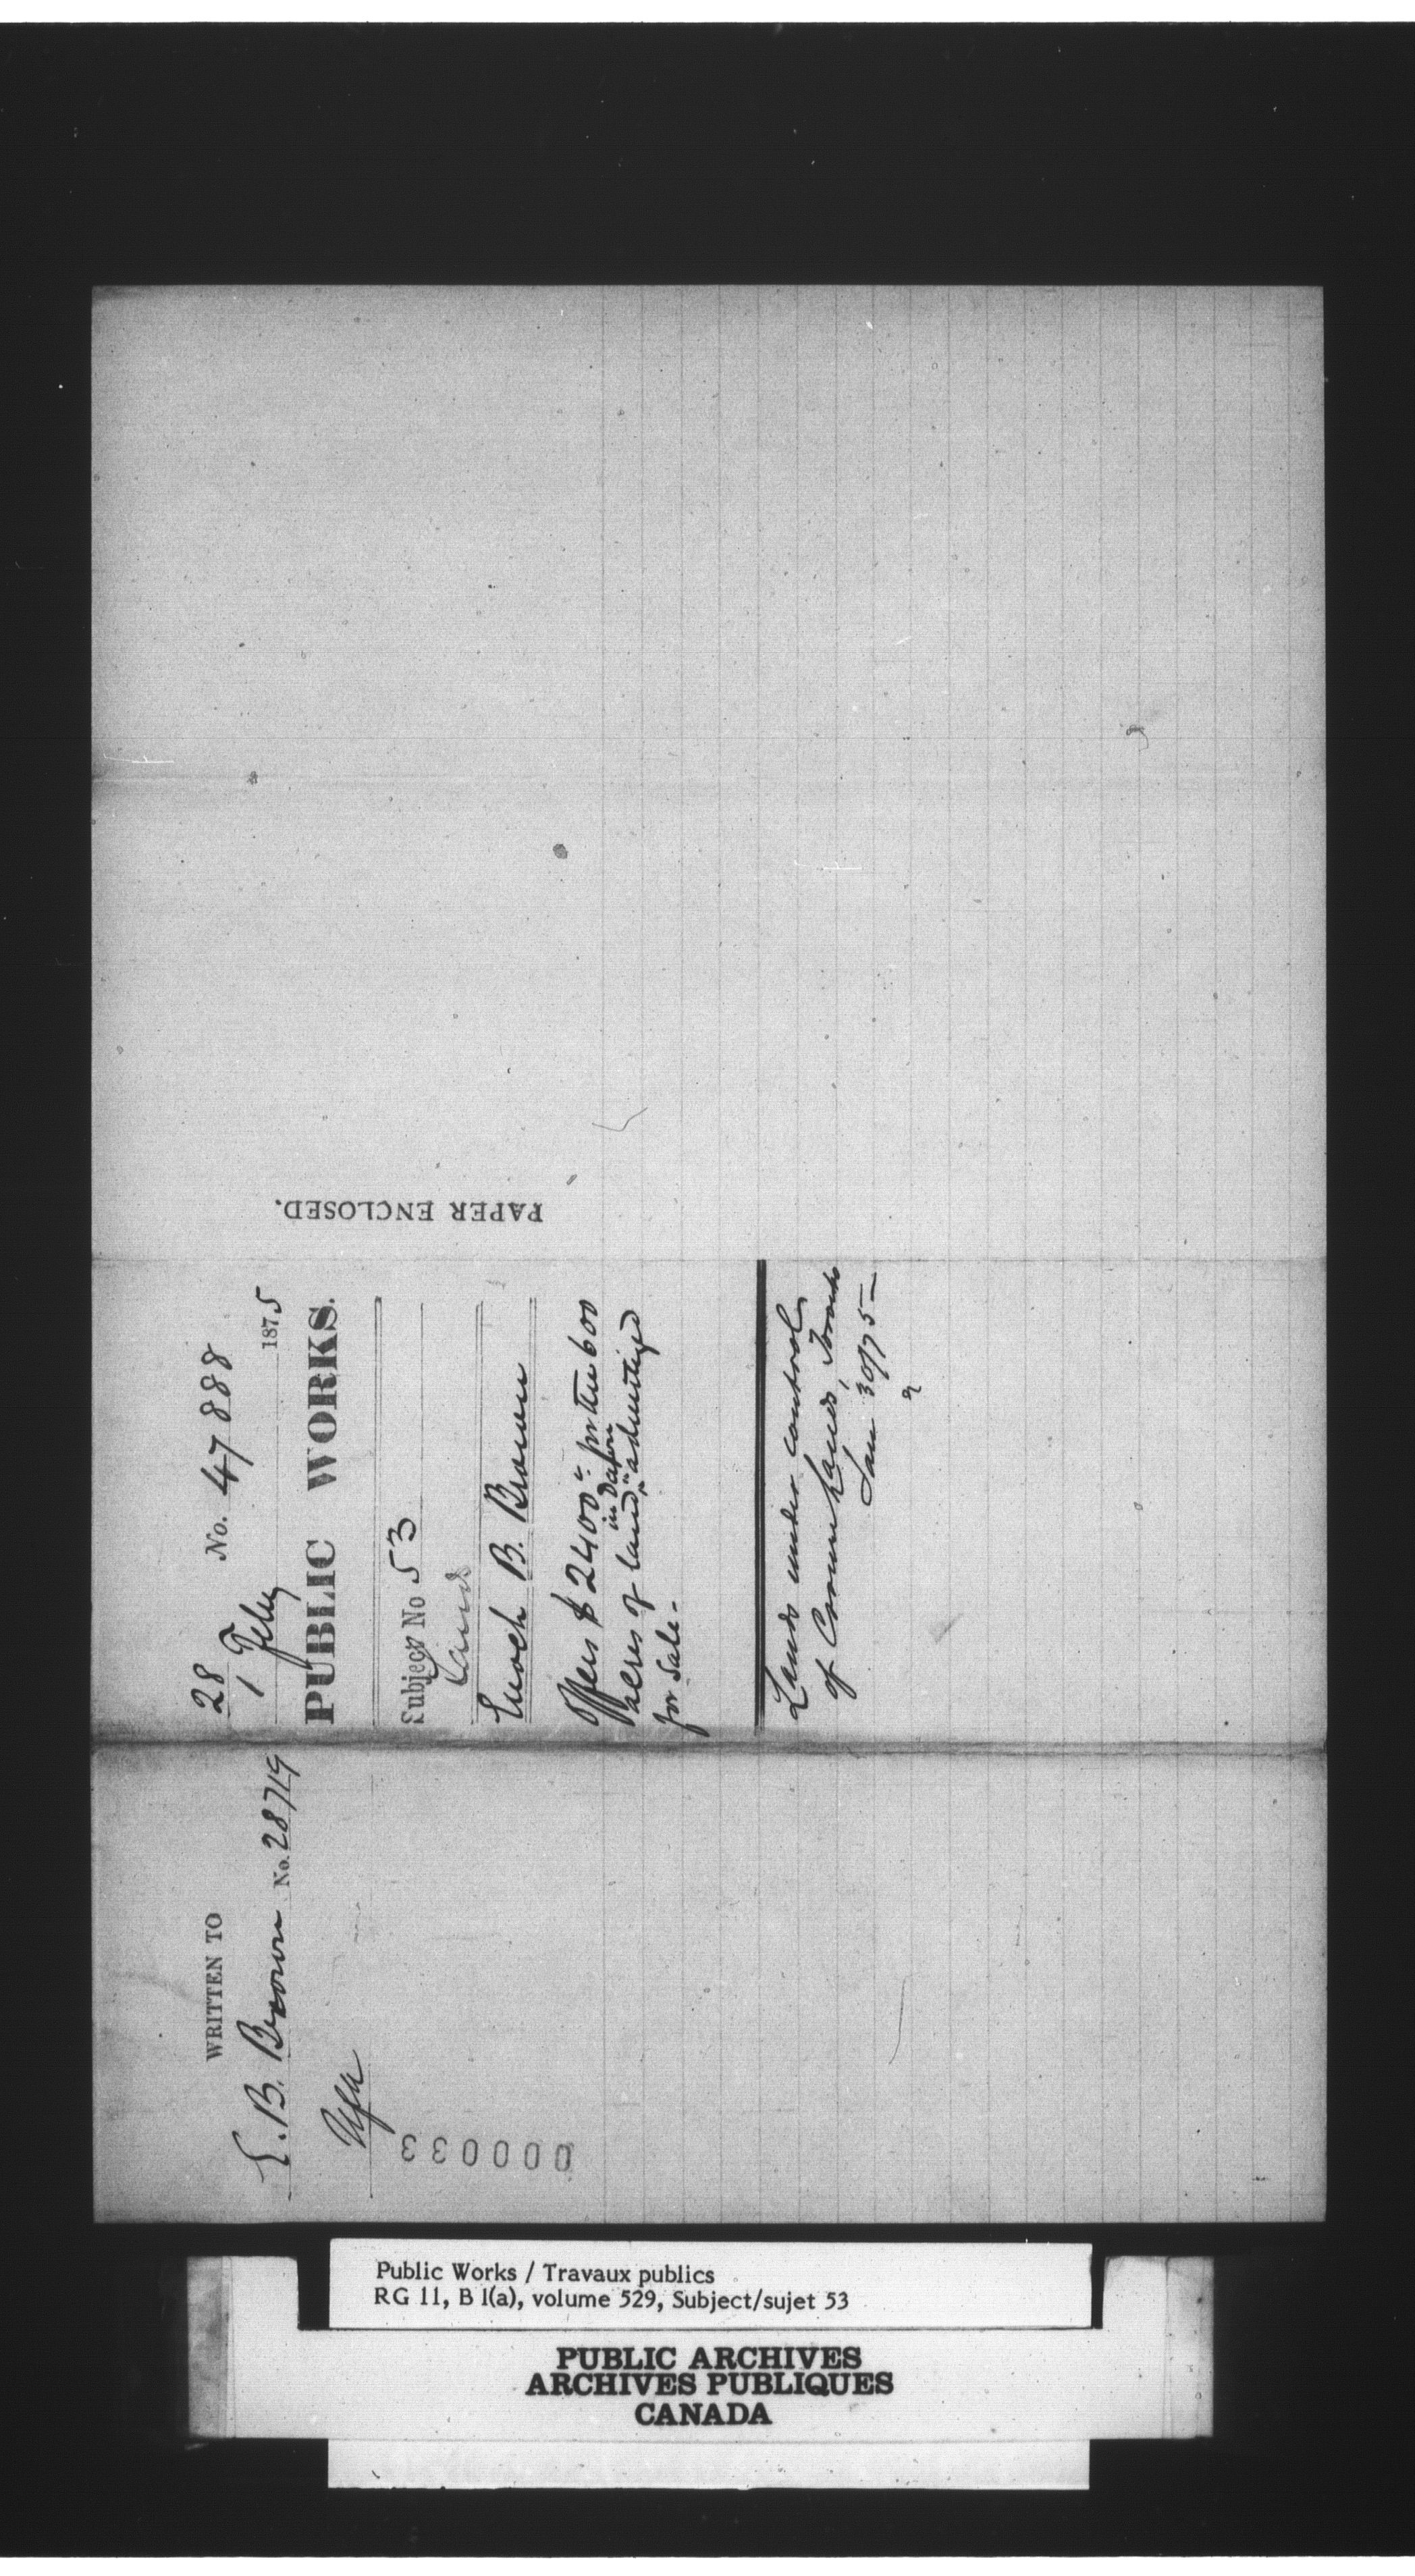 PAPER ENCLOSED.
28 No. 47888
1 Feby 1875
PUBLIC WORKS.
Subject No 53
Lands
Enoch B. Brown
Offers $2400 for the 600
acres of land in Dawn advertized
for Sale -
Lands under control
of Comm Lands, Toronto
Jan 30/75
WRITTEN TO
E. B. Brown No. 28719
000033
Public Works / Travaux publics
RG 11, B 1(a), volume 529, Subject/sujet 53
PUBLIC ARCHIVES
ARCHIVES PUBLIQUES
CANADA